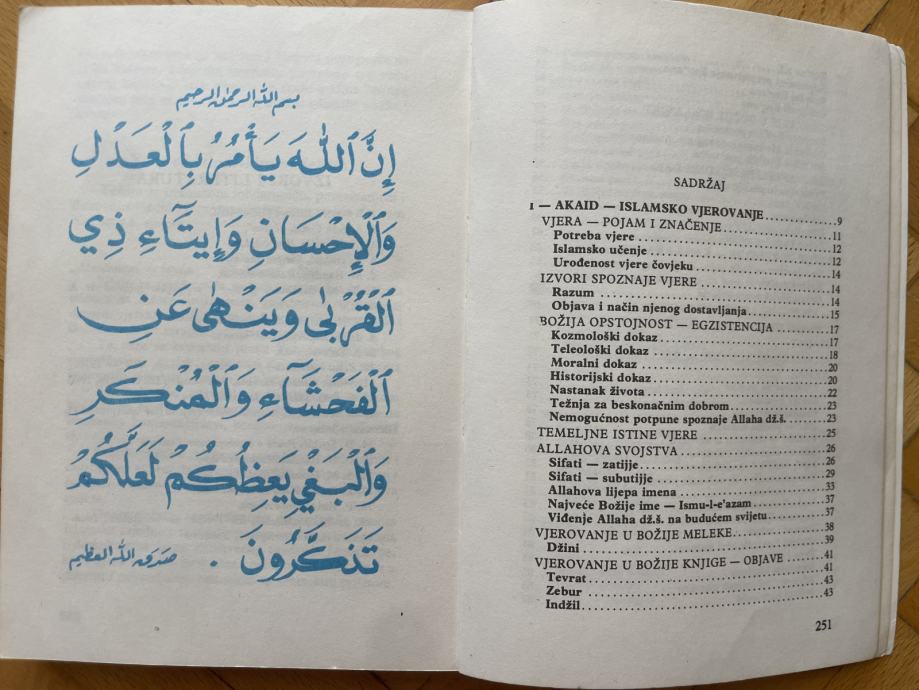 بسم الله الرحمن الرحيم
إِنَّ ٱللَّهَ يَأْمُرُ بِٱلْعَدْلِ
وَٱلْإِحْسَانِ وَإِيتَآءِ ذِي
ٱلْقُرْبَىٰ وَيَنْهَىٰ عَنِ
ٱلْفَحْشَآءِ وَٱلْمُنْكَرِ
وَٱلْبَغْيِ يَعِظُكُمْ لَعَلَّكُمْ
تَذَكَّرُونَ .
صدق الله العظيم
SADRŽAJ
I — AKAID — ISLAMSKO VJEROVANJE 9
VJERA — POJAM I ZNAČENJE 11
Potreba vjere 12
Islamsko učenje 12
Urođenost vjere čovjeku 14
IZVORI SPOZNAJE VJERE 14
Razum 14
Objava i način njenog dostavljanja 15
BOŽIJA OPSTOJNOST — EGZISTENCIJA 17
Kozmološki dokaz 17
Teleološki dokaz 18
Moralni dokaz 20
Historijski dokaz 20
Nastanak života 22
Težnja za beskonačnim dobrom 23
Nemogućnost potpune spoznaje Allaha dž.š. 23
TEMELJNE ISTINE VJERE 25
ALLAHOVA SVOJSTVA 26
Sifati — zatijje 26
Sifati — subutijje 29
Allahova lijepa imena 33
Najveće Božije ime — Ismu-l-e'azam 37
Viđenje Allaha dž.š. na budućem svijetu 37
VJEROVANJE U BOŽIJE MELEKE 38
Džini 39
VJEROVANJE U BOŽIJE KNJIGE — OBJAVE 41
Tevrat 41
Zebur 43
Indžil 43
251